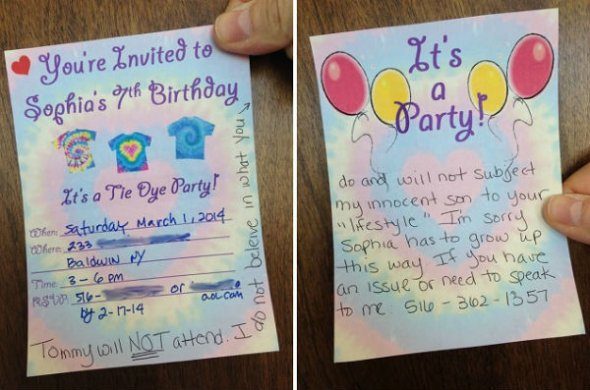 You're Invited to
Sophia's 7th Birthday
It's a Tie Dye Party!
When: Saturday March 1, 2014
Where: 233
Baldwin NY
Time: 3-6 pm
RSVP: 516- or aol.com
by 2-17-14
Tommy will NOT attend. I
do not beleive in what you
It's
a
Party!
do and will not subject
my innocent son to your
"lifestyle". I'm sorry
Sophia has to grow up
this way. If you have
an issue or need to speak
to me: 516-362-1357